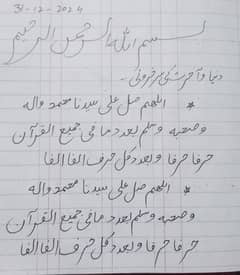 31-12-2024
بسم الله الرحمن الرحيم
دنیا و آخرت کی سرخروئی۔
* اللهم صل على سيدنا محمد واله
وصحبه وسلم بعدد ما فى جميع القرآن
حرفا حرفا وبعدد كل حرف الفا الفا
* اللهم صل على سيدنا محمد واله
وصحبه وسلم بعدد ما فى جميع القرآن
حرفا حرفا وبعدد كل حرف الفا الفا